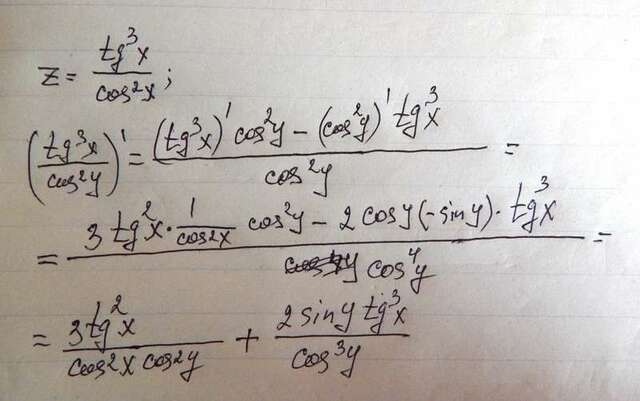 z = tg³x / cos²x ;
(tg³x / cos²y)' = ((tg³x)' cos²y − (cos²y)' tg³x) / cos²y =
= (3 tg²x · 1/cos2x cos²y − 2 cosy (−siny) · tg³x) / cos⁴y =
= 3tg²x / (cos²x cos2y) + 2 siny tg³x / cos³y